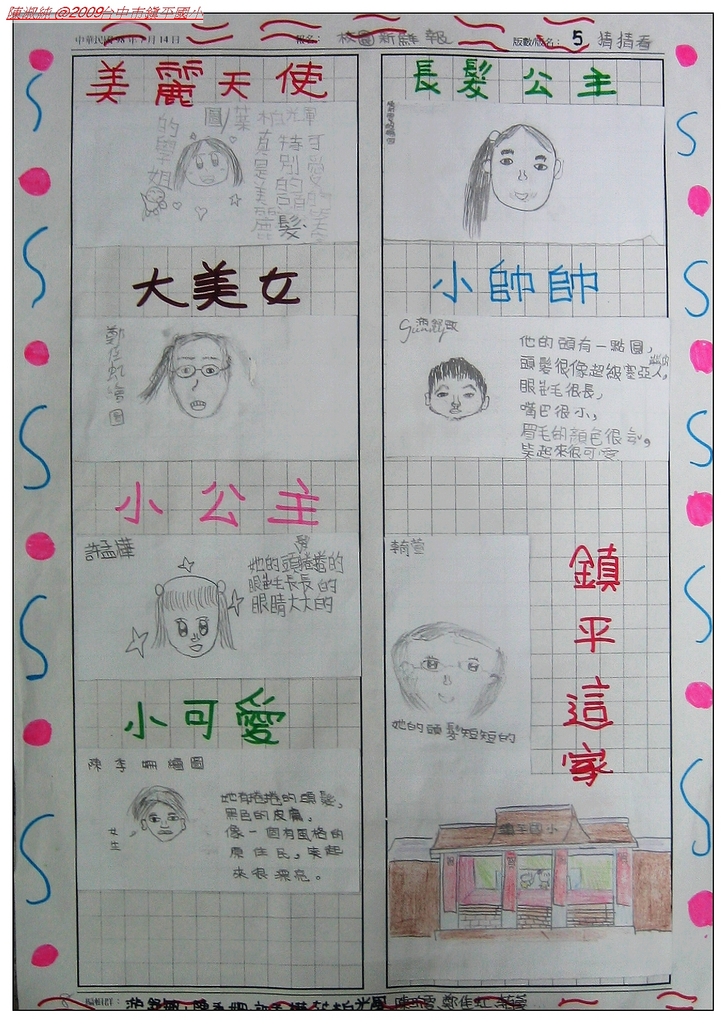 陳淑純 @2009台中市鎮平國小
中華民國98年 月14日
報名：
校園新鮮報
版數/版名：
5
猜猜看
美麗天使
圖/葉柏光
可愛的笑
特別的頭髮
真是美麗
的學姐
大美女
鄭仹虹繪圖
小公主
許孟樺
她的頭髮捲捲的
眼睫毛長長的
眼睛大大的
小可愛
陳李姍繪圖
女生
她有捲捲的頭髮，
黑色的皮膚，
像一個有風格的
原住民，笑起
來很漂亮。
長髮公主
小帥帥
他的頭有一點圓，
頭髮很像超級賽亞人，
眼睫毛很長，
嘴巴很小，
眉毛的顏色很
笑起來很可愛
翰萱
她的頭髮短短的
鎮平這家
鎮平國小
編輯群：